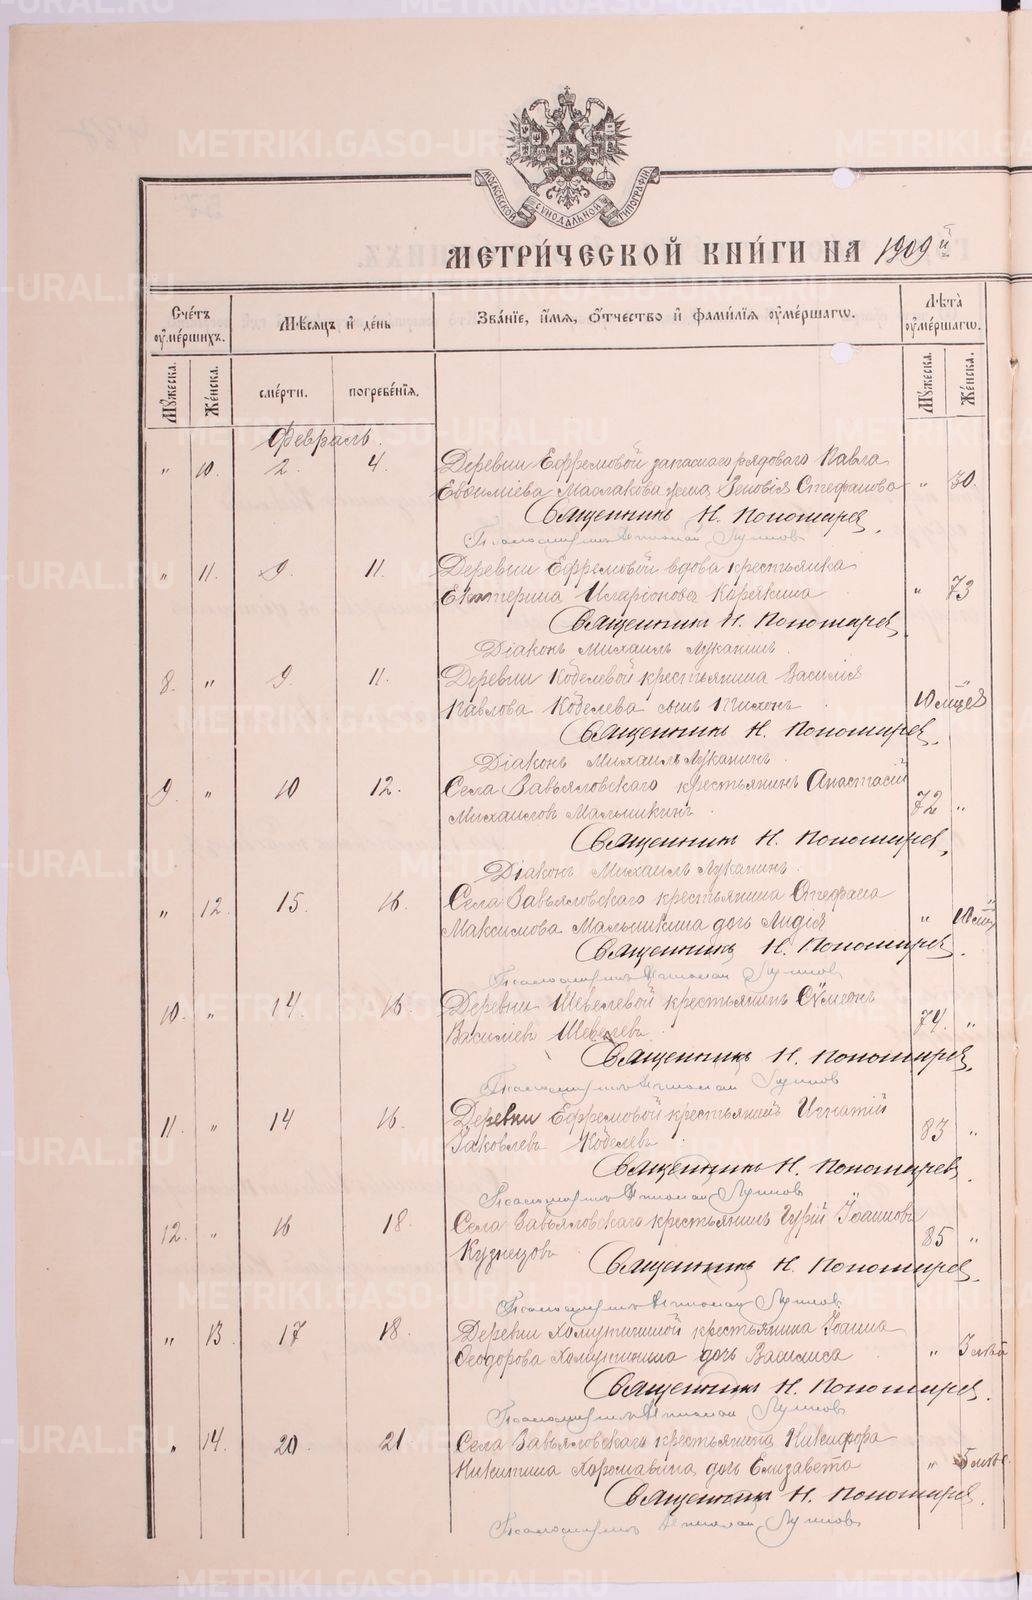 МОСКОВСКОЙ СѴНОДАЛЬНОЙ ТИПОГРАФІИ
МЕТРИ́ЧЕСКОЙ КНИ́ГИ НА 1909 й
Сче́тъ ᲂу҆ме́ршихъ.
Мѣ́сяцъ и҆ де́нь
Зва́нїе, и҆́мѧ, ѻ҆́тчество и҆ фами́лїѧ ᲂу҆ме́ршагѡ.
Лѣта̀ ᲂу҆ме́ршагѡ.
Мꙋ́жеска.
Же́нска.
сме́рти.
погребе́нїѧ.
Мꙋ́жеска.
Же́нска.
Февраль.
" 10. 2. 4. Деревни Ефремовой запаснаго рядоваго Павла
Евѳиміева Маслакова жена Зеновія Стефанова " 70.
Священникъ Н. Пономарев
Псаломщикъ
" 11. 9. 11. Деревни Ефремовой вдова крестьянка
Екатерина Иларіонова Корякина " 73
Священникъ Н. Пономарев
Діаконъ Михаилъ Луканинъ.
8. " 9. 11. Деревни Кобелевой крестьянина Василія
Павлова Кобелева сынъ Тихонъ 10 мцев "
Священникъ Н. Пономарев.
Діаконъ Михаилъ Луканинъ.
9. " 10 12. Села Завьяловскаго крестьянинъ Анастасій
Михаиловъ Мальшикинъ. 72 "
Священникъ Н. Пономарев.
Діаконъ Михаилъ Луканинъ.
" 12. 15. 16. Села Завьяловскаго крестьянина Стефана
Максимова Мальшикина дочь Лидія "
Священникъ Н. Пономарев.
Псаломщикъ
10. " 14. 16. Деревни Шевелевой крестьянинъ Сѵмеонъ
Василіевъ Шевелевъ. 74. "
Священникъ Н. Пономарев.
Псаломщикъ
11. " 14 16. Деревни Ефремовой крестьянинъ Игнатій
Іаковлевъ Кобелевъ. 83 "
Священникъ Н. Пономарев.
Псаломщикъ
12. " 16 18. Села Завьяловскаго крестьянинъ Гурій Іоанновъ
Кузнецовъ 85 "
Священникъ Н. Пономарев.
Псаломщикъ
" 13. 17 18. Деревни Хомутининой крестьянина Іоанна
Ѳеодорова Хомутинина дочь Василиса " 3 лѣтъ
Священникъ Н. Пономарев.
Псаломщикъ
" 14. 20. 21 Села Завьяловскаго крестьянина Никифора
Никитина дочь Елизавета " 5 лѣтъ.
Священникъ Н. Пономарев.
Псаломщикъ
METRIKI.GASO-URAL.RU